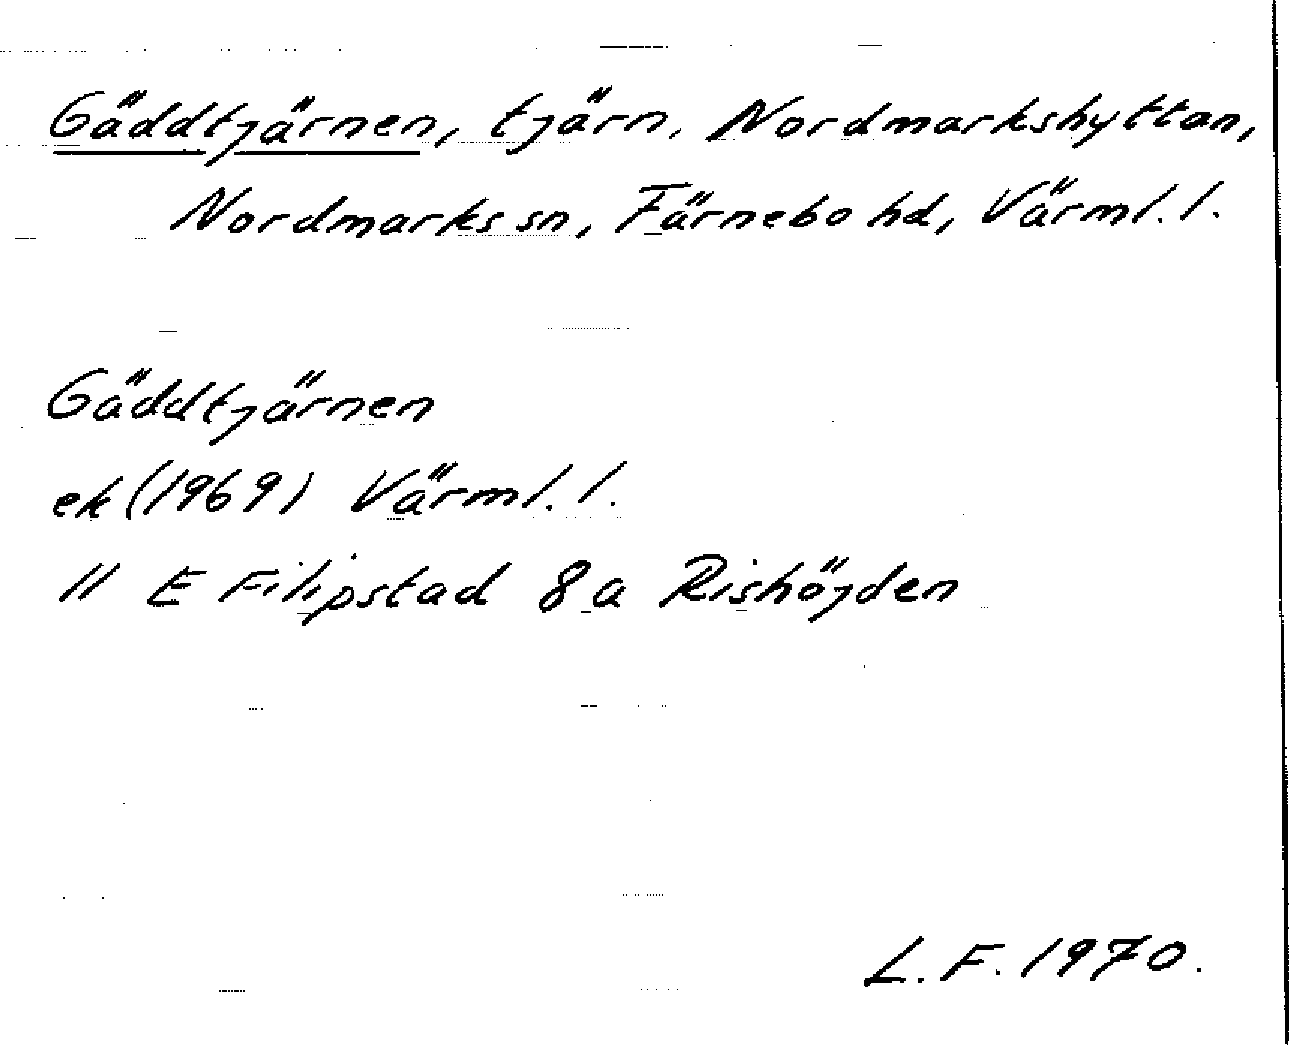 Gäddtjärnen, tjärn, Nordmarkshyttan,
Nordmarks sn, Färnebo hd, Värml. l.
Gäddtjärnen
ek (1969) Värml. l.
11 E Filipstad 8a Rishöjden
L. F. 1970.